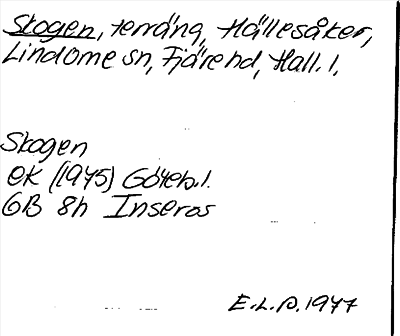 Skogen, terräng, Hällesåker,
Lindome sn, Fjäre hd, Hall. l.
Skogen
ek (1975) Göteb. l.
GB 8h Inseros
E.L.D. 1977